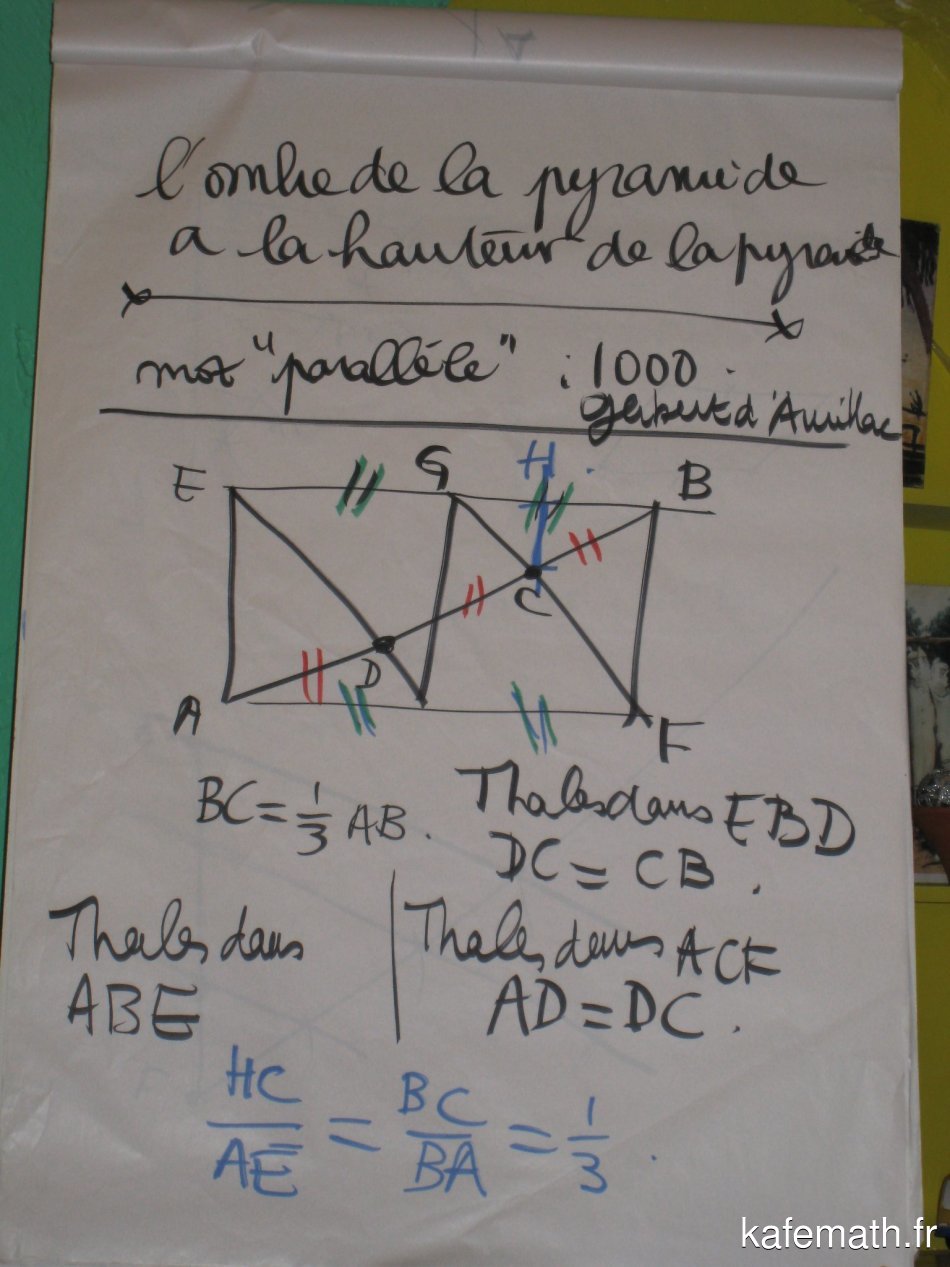 l'ombre de la pyramide
a la hauteur de la pyramide
mot "parallèle" : 1000.
Gerbert d'Aurillac
E G H B
C
D
A F
BC = 1/3 AB.
Thales dans EBD
DC = CB.
Thales dans
ABE
Thales dans ACF
AD = DC.
HC/AE = BC/BA = 1/3.
kafemath.fr